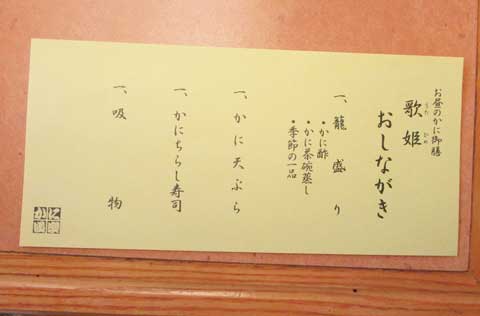 お昼のかに御膳
歌姫
うたひめ
おしながき
一、籠盛り
・かに酢
・かに茶碗蒸し
・季節の一品
一、かに天ぷら
一、かにちらし寿司
一、吸物